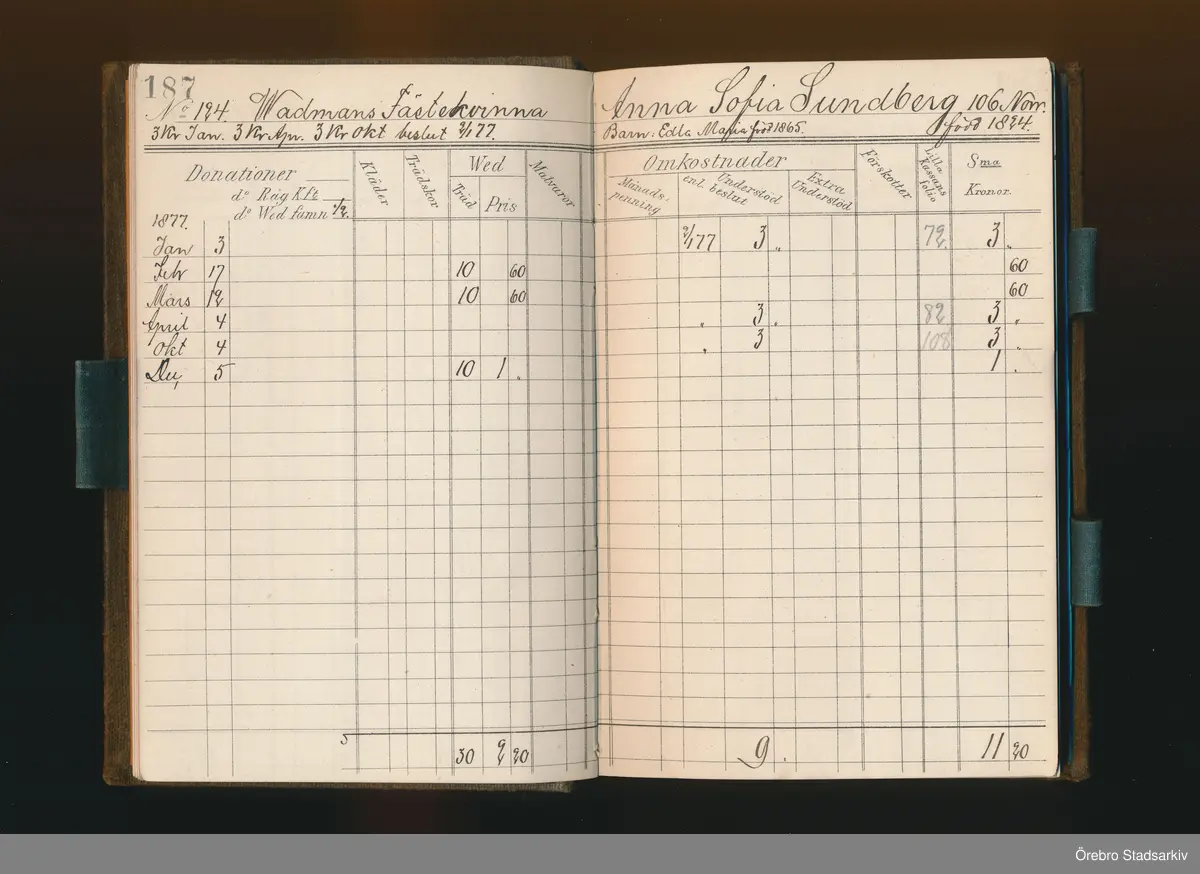 187
No 124. Wadmans Fästekvinna
3 Kr Jan. 3 Kr Apr. 3 Kr Okt beslut 2/1 77.
Donationer
do Råg Kfr
do Wed famn 1/2.
Kläder
Trädskor
Wed
Träd Pris
Matvaror
1877.
Jan 3
Febr 17 10 60
Mars 12 10 60
April 4
Okt 4
5 10 1 "
30 2 20
Anna Sofia Lundberg 106 Norr.
Barn: Edla Maria född 1865. född 1824.
Omkostnader
Månads-penning
enl. beslut
Understöd
Extra Understöd
Förskotter
Lilla Kassans folio
Sma
Kronor.
2/1 77 3 " 72 3 "
60
60
" 3 " 82 3 "
" 3 108 3 "
1 "
9. 11 20
Örebro Stadsarkiv